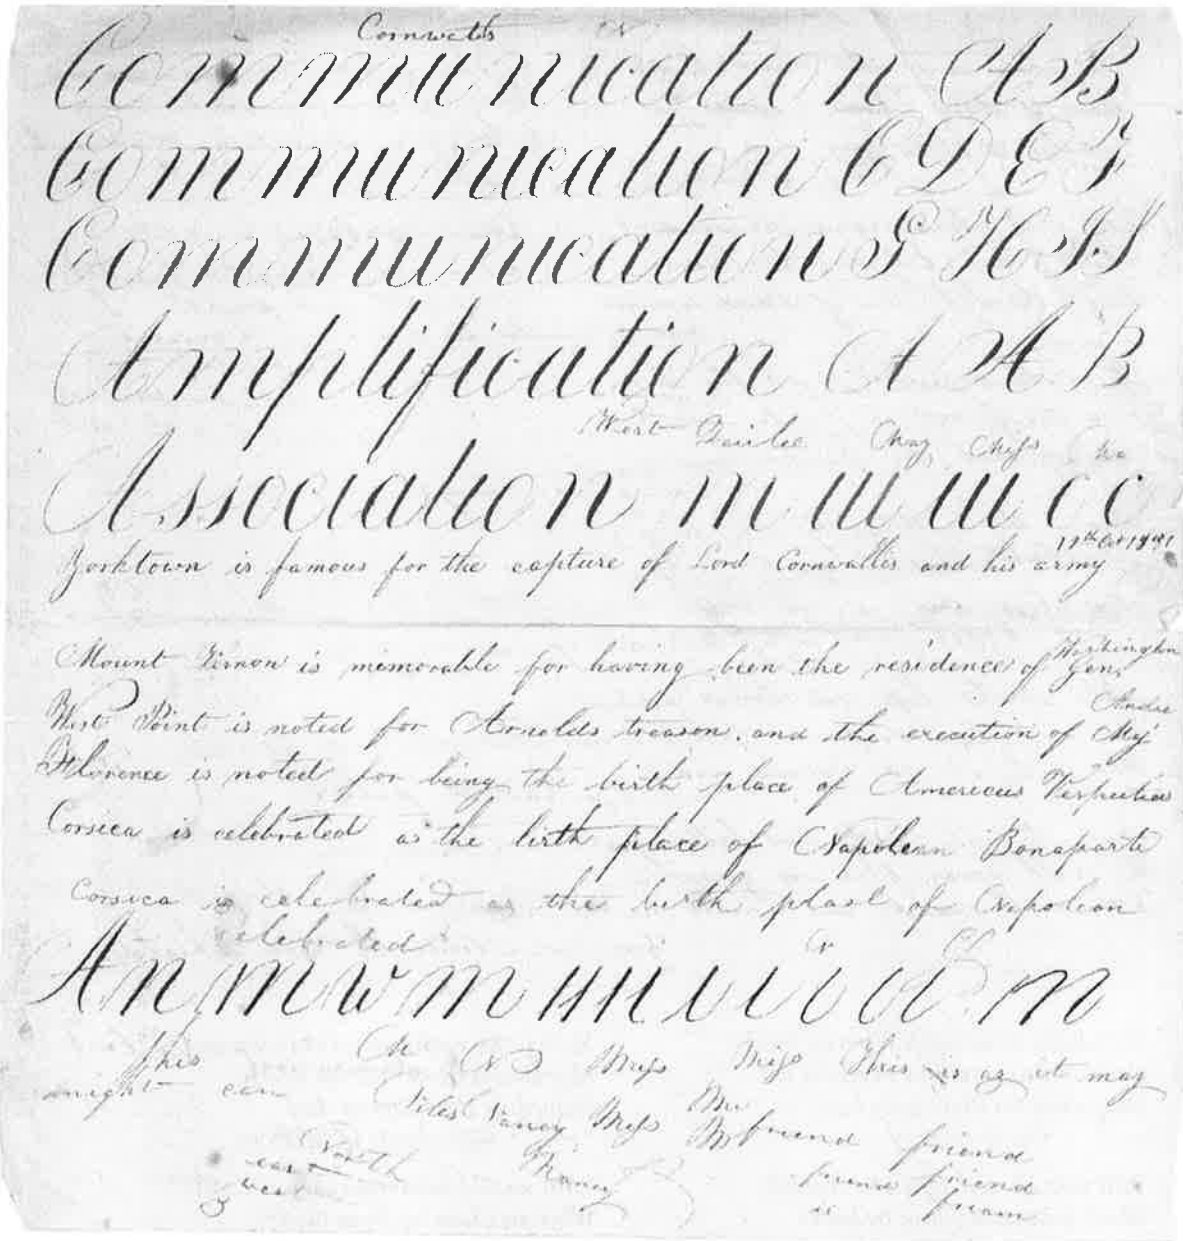 Cornwells N
Communication A B
Communication C D E F
Communication G H I J
Amplification A A B
West May Miss
Association m u u c c
Yorktown is famous for the capture of Lord Cornwallis and his army
Mount Vernon is memorable for having been the residence of Gen. Washington
West Point is noted for Arnolds treason, and the execution of Maj Andre
Florence is noted for being the birth place of Americus Vespucius
Corsica is celebrated as the birth place of Napolean Bonaparte
Corsica is celebrated as the birth place of Napolean
celebrated
An m w m
This N Miss Miss This is as it may
might can Nancy Miss friend friend
North Nancy friend friend
east
west